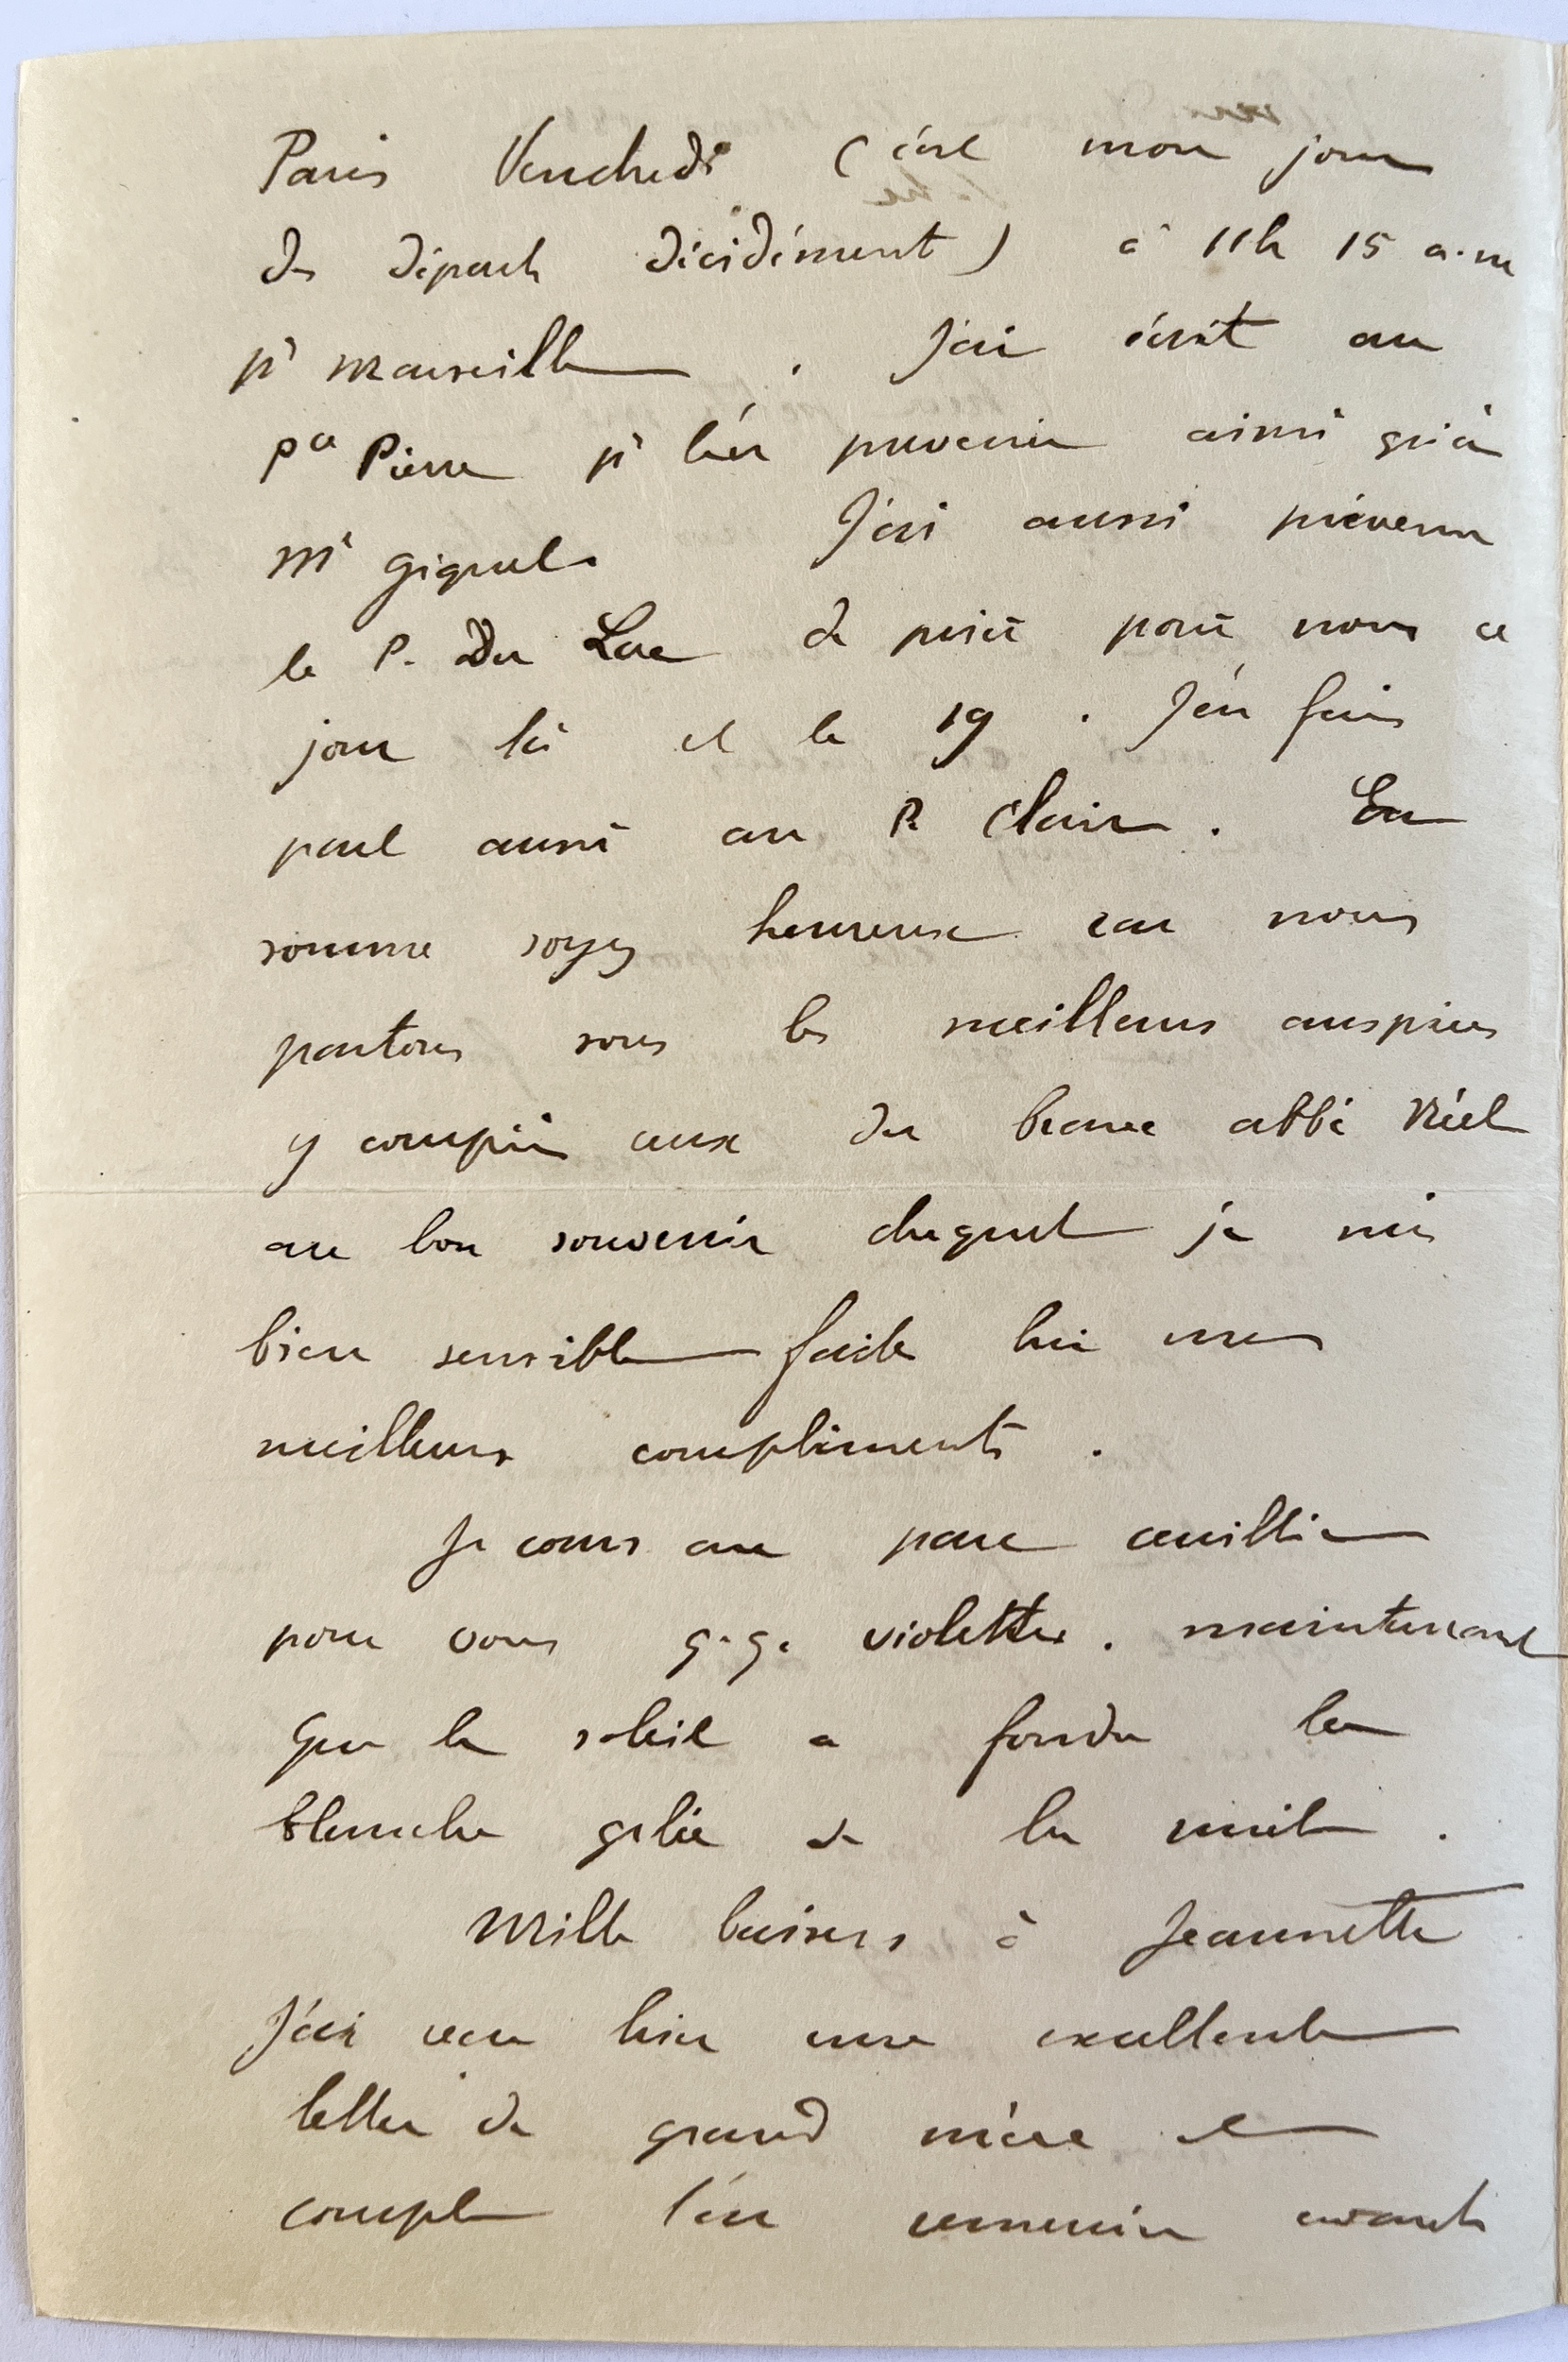 Paris Vendredi (c'est mon jour
de départ décidément) à 11h 15 a.m
pr Marseille. J'ai écrit au
Pce Pierre pr l'en prévenir ainsi qu'à
Mr Gignel. J'ai aussi prévenu
le P. Du Lac de prier pour nous ce
jour là et le 19. J'en fais
part aussi au P. Clair. En
somme soyez heureuse car nous
partons sous les meilleurs auspices
y compris ceux du brave abbé
au bon souvenir duquel je suis
bien sensible faites lui mes
meilleurs compliments.
Je cours au parc cueillir
pour vous q.q. violettes. maintenant
que le soleil a fondu la
blanche gelée de la nuit.
Mille baisers à Jeannette
J'ai reçu hier une excellente
lettre de grand mère et
compte l'en remercier avant